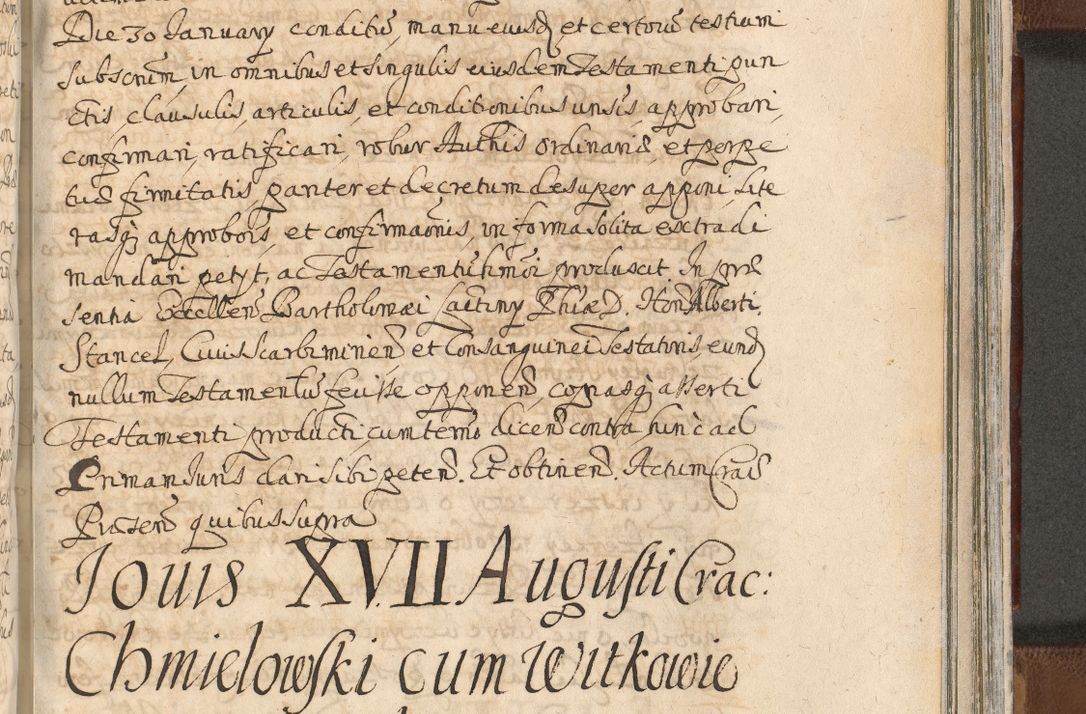 Die 30 January conditũ, manu eiusd et certorũ testium
subscriũ, in omnibus et singulis eiusdem Testamenti pun
ctis, clausulis, articulis, et conditionibus unsis, approbari,
confirmari, ratificari, robur Authis Ordinariæ, et perpe
tuæ firmitatis pariter et decretum desuper apponi, Lite
rasq approbõis, et confirmaõnis, in forma solita extradi
mandari petyt, ac Testamentũ hmõi produxit. In præ
sentia Excellen Bartholomæi Phiæ D. Hon Alberti
Stancel, Civis Scarbimirien et Consanguinei Testatoris, eund
nullum Testamentũ feuisse opponen, copiasq asserti
Testamenti producti cum termo dicen contra hinc ad
Primam Iuris dari sibi peten. Et obtinen. Actum Craē
Præsen quibus supra
Iouis XVII Augusti Crac:
Chmielowski cum Witkowie